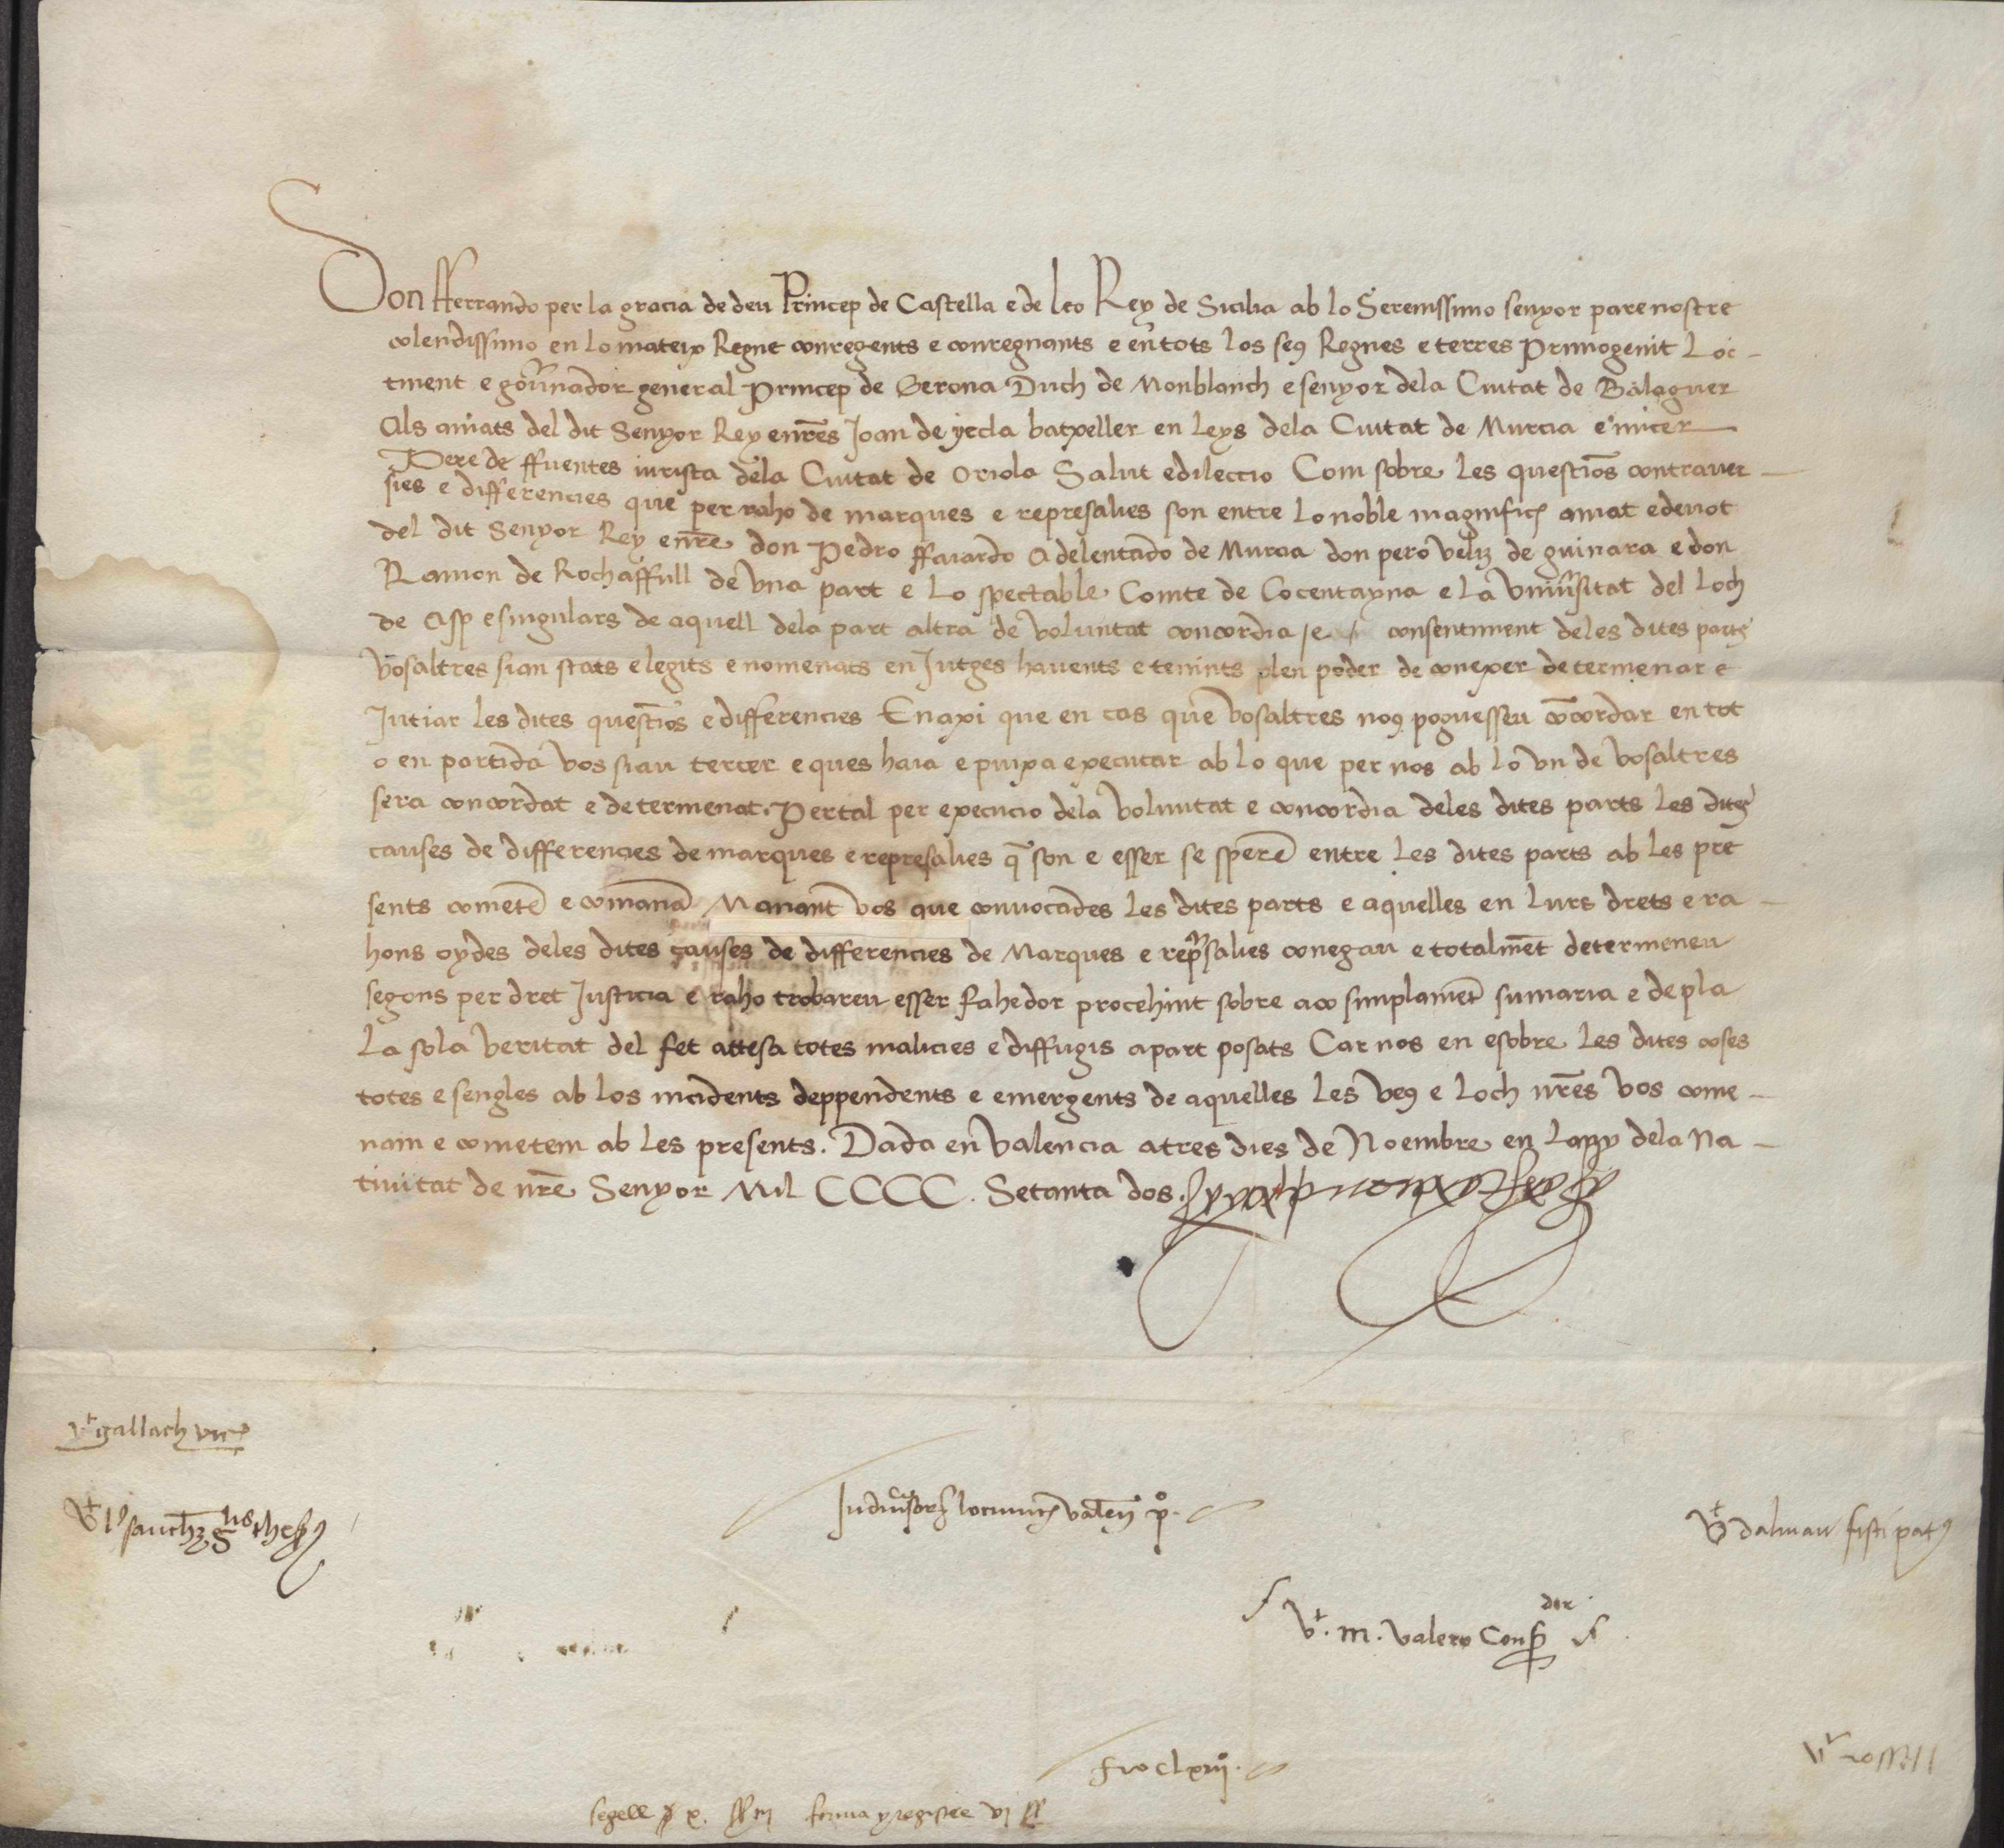 Don fferrando per la gracia de deu Princep de Castella e de leo Rey de Sicilia ab lo Serenissimo senyor pare nostre
colendissimo en lo mateix Regne conregents e conregnants e en tots los seus Regnes e terres Primogenit Loc-
tinent e gov̄nador general Princep de Gerona Duch de Monblanch e senyor dela Ciutat de Balaguer
Als amats del dit Senyor Rey e nr̄es Joan de yecla batxeller en leys dela Ciutat de Murcia e micer
Pere de ffuentes jurista dela Ciutat de Oriola Salut e dileccio Com sobre les questiōs contraver-
sies e differencies que per raho de marques e represalies son entre lo noble magnifich amat e devot
del dit Senyor Rey e nr̄e don Pedro ffaiardo Adelentado de Murcia don pero veliz de guivara e don
Ramon de Rochaffull de una part e lo spectable Comte de Cocentayna e la univ̄sitat del loch
de Asp e singulars de aquell dela part altra de voluntat concordia e consentiment deles dites parts
vosaltres siau stats elegits e nomenats en Jutges havents e tenints plen poder de conexer determenar e
Jutiar les dites questiōs e differencies En axi que en cas que vosaltres nous poguesseu cōcordar en tot
o en partida vos siau tercer e ques haia e puixa executar ab lo que per nos ab lo un de vosaltres
sera concordat e determenat. Pertal per execucio dela voluntat e concordia deles dites parts les dites
causes de differencies de marques e represalies q̄ son e esser se sperē entre les dites parts ab les pre
sents cometē e comanā Manant vos que convocades les dites parts e aquelles en lurs drets e ra-
hons oydes deles dites causes de differencies de Marques e rep̄salies conegau e totalmēt determeneu
segons per dret Justicia e raho trobareu esser fahedor procehint sobre aço simplamēt sumaria e de pla
La sola veritat del fet attesa totes malicies e diffugis apart posats Car nos en e sobre les dites coses
totes e sengles ab los incidents deppendents e emergents de aquelles les veus e loch nr̄es vos come-
nam e cometem ab les presents. Dada en Valencia a tres dies de Noembre en lany dela Na-
tivitat de nr̄e Senyor Mil CCCC. Setanta dos.
Vt gallach vic
Vt sanchz gnlis thes
In div̄sorz locumtis valen p̊.
Vt dalmau
Vt. m. valero Conser dor
fio clxiij.
Vt rossell
segell x. ss forma y registre vj ss